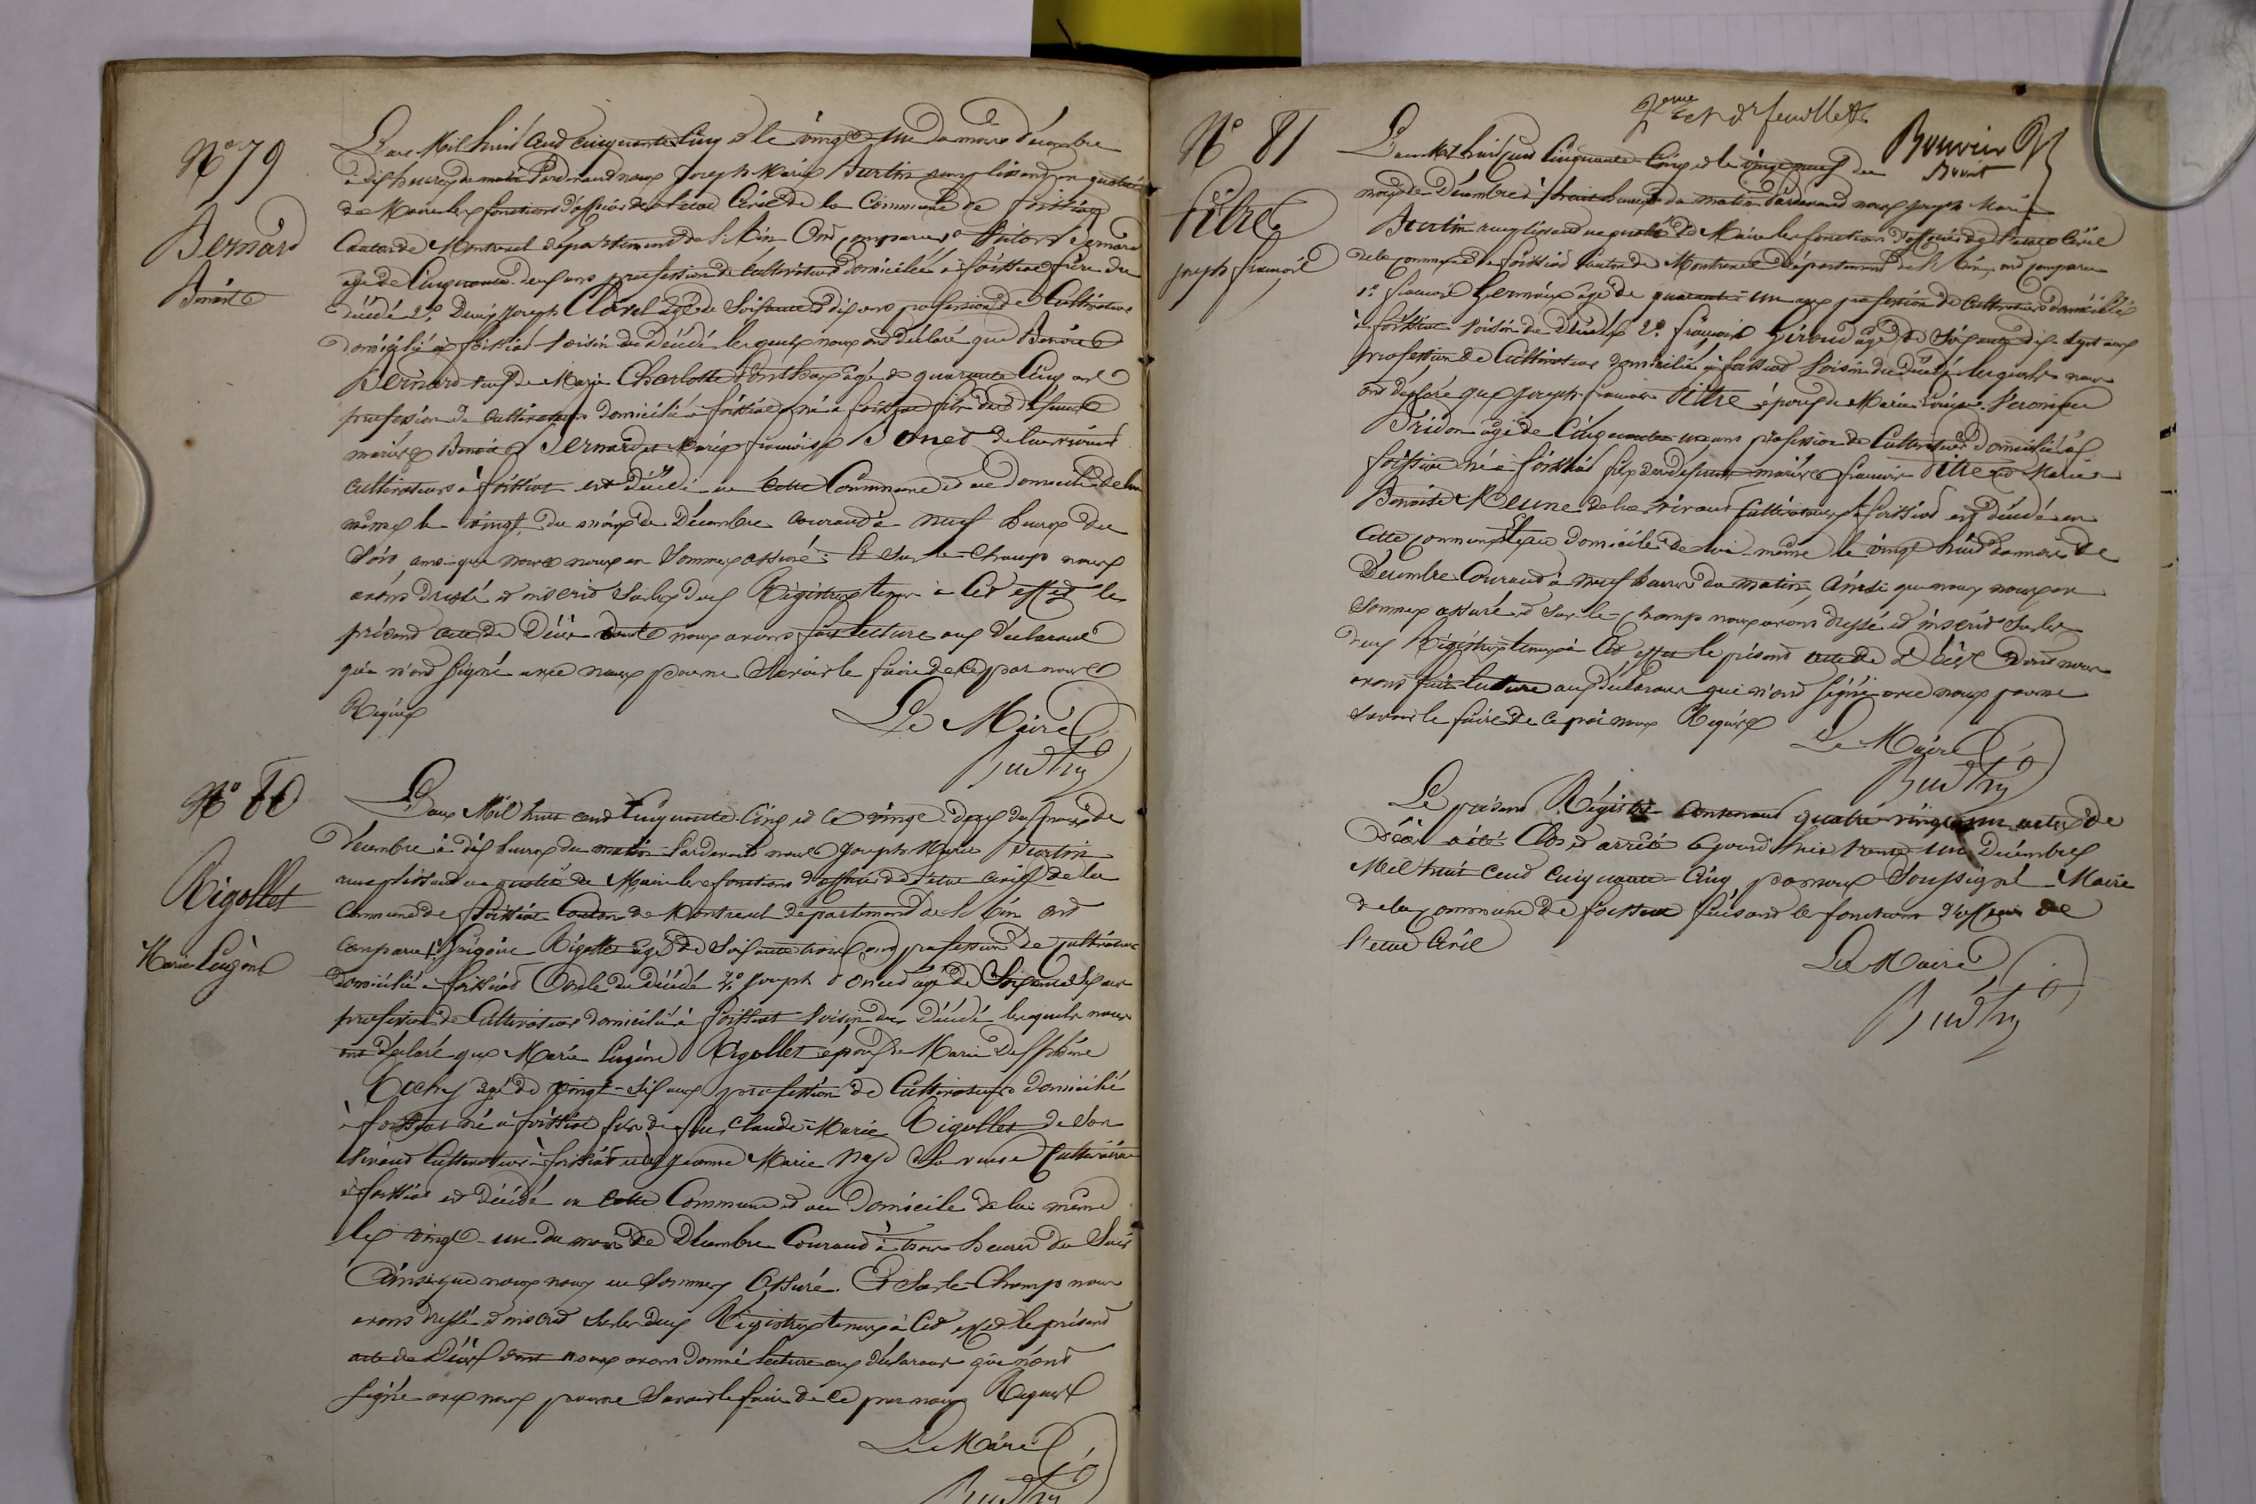 N° 79
Bernard
Benoit
L'an Mil huit Cent Cinquante Cinq et le vingt un du mois décembre
à dix heures du matin Pardevant nous Joseph Marie Burtin remplissant en qualité
de Maire les fonctions d'officier de l'état Civil de la Commune de foissiat
Canton de Montrevel département de l'Ain Ont comparu 1° Bernard
âgé de Cinquante deux ans profession de Cultivateur domicilié à foissiat frère du
décédé 2° Denis Joseph Clavel âgé de Soixante dix ans profession de Cultivateur
domicilié à foissiat voisin du Décédé lesquels nous ont déclaré que Benoit
Bernard veuf de Marie Charlotte âgé de quarante Cinq ans
profession de Cultivateur domicilié à foissiat né à foissiat fils des défunts
mariés Benoit Bernard et Marie françoise Bonet de leur vivant
cultivateurs à foissiat est décédé en Cette Commune et au domicile de lui
même le vingt du mois de Décembre Courant à neuf heures du
Soir, ainsi que nous nous en Sommes assuré. Et Sur-le-Champ nous
avons dressé et inscrit Sur les deux Registres tenus à Cet effet le
présent acte de Décès dont nous avons fait lecture aux déclarants
qui n'ont Signé avec nous pour ne Savoir le faire de ce par nous
Requis
Le Maire
Burtin
N° 80
Rigollet
Marie Eugène
L'an Mil huit cent Cinquante-Cinq et le vingt-deux du mois de
Décembre à dix heures du matin Pardevant nous Joseph Marie Burtin
remplissant en qualité de Maire les fonctions d'officier de l'état civil de la
Commune de foissiat Canton de Montrevel département de l'Ain ont
Comparu 1° Rigollet âgé de Soixante trois ans profession de Cultivateur
domicilié à foissiat Oncle du Décédé 2° Joseph âgé de Soixante
profession de Cultivateur domicilié à foissiat voisin du Décédé lesquels nous
ont déclaré que Marie Eugène Rigollet époux de Marie Delphine
âgé de vingt-six ans profession de Cultivateur domicilié
à foissiat né à foissiat fils de feu Claude-Marie Rigollet de Son
vivant Cultivateur à foissiat et de Jeanne Marie Sa veuve Cultivatrice
à foissiat est décédé en Cette Commune et au Domicile de lui même
le vingt-un du mois de Décembre Courant à trois heures du Soir
Ainsi que nous nous en Sommes Assuré. Et Sur-le-Champ nous
avons dressé et inscrit Sur les deux Registres tenus à Cet effet le présent
acte de Décès dont nous avons donné lecture aux déclarants qui n'ont
Signé avec nous pour ne Savoir le faire de ce par nous Requis
Le Maire
Burtin
2eme et dr feuillet
Bouvier
N° 81
Pitre
joseph françois
L'an Mil huit Cent Cinquante-Cinq et le vingt neuf du
mois de Décembre à heures du matin Pardevant nous Joseph Marie
Burtin remplissant en qualité de Maire les fonctions d'officier de l'état Civil
de la commune de foissiat Canton de Montrevel Département de l'Ain, ont comparu
1° françois âgé de quarante-un ans profession de Cultivateur domicilié
à foissiat voisin du Décédé 2° françois Giroud âgé de Soixante dix Sept ans
profession de Cultivateur domicilié à foissiat Voisin du Décédé lesquels nous
ont déclaré que Joseph-françois Pitre époux de Marie Véronique
âgé de Cinquante un ans profession de Cultivateur domicilié à
foissiat né à foissiat fils des défunts mariés françois Pitre et Marie
Benoite de leur vivant Cultivateurs à foissiat est décédé en
Cette commune Et au domicile de lui-même le vingt huit du mois de
Décembre Courant à neuf heures du matin, Ainsi que nous nous en
Sommes assuré et Sur-le-Champ nous avons dressé et inscrit Sur les
deux Registres tenus à Cet effet le présent acte de Décès dont nous
avons fait lecture aux déclarants qui n'ont Signé avec nous pour ne
Savoir le faire de Ce par nous Requis
Le Maire
Burtin
Le présent Registre Contenant quatre vingt un actes de
Décès a été Clos et arrêté Ce jourd'hui trente Un Décembre
Mil huit Cent Cinquante-Cinq par nous Soussigné Maire
de la commune de foissiat faisant les fonctions d'officier de
l'état Civil
Le Maire
Burtin